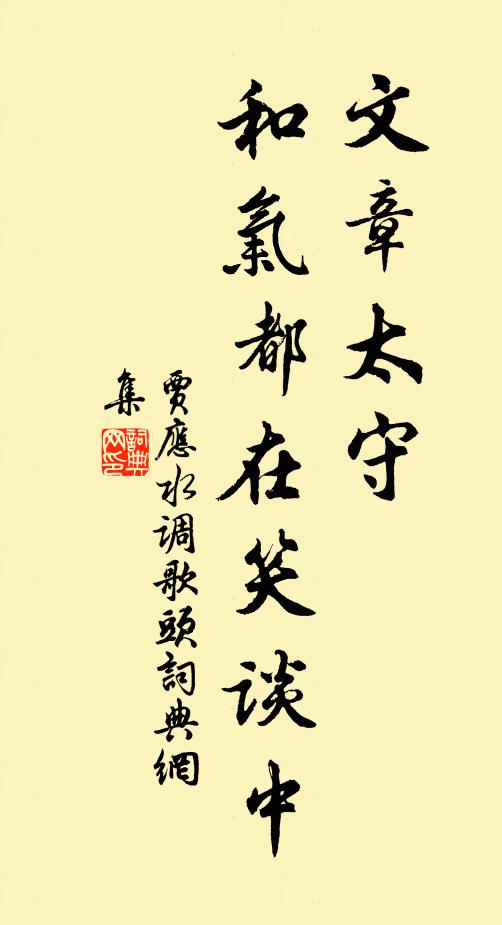 文章太守
和氣都在笑談中
賈應水调歌頭詞典網
集
詞典
网印